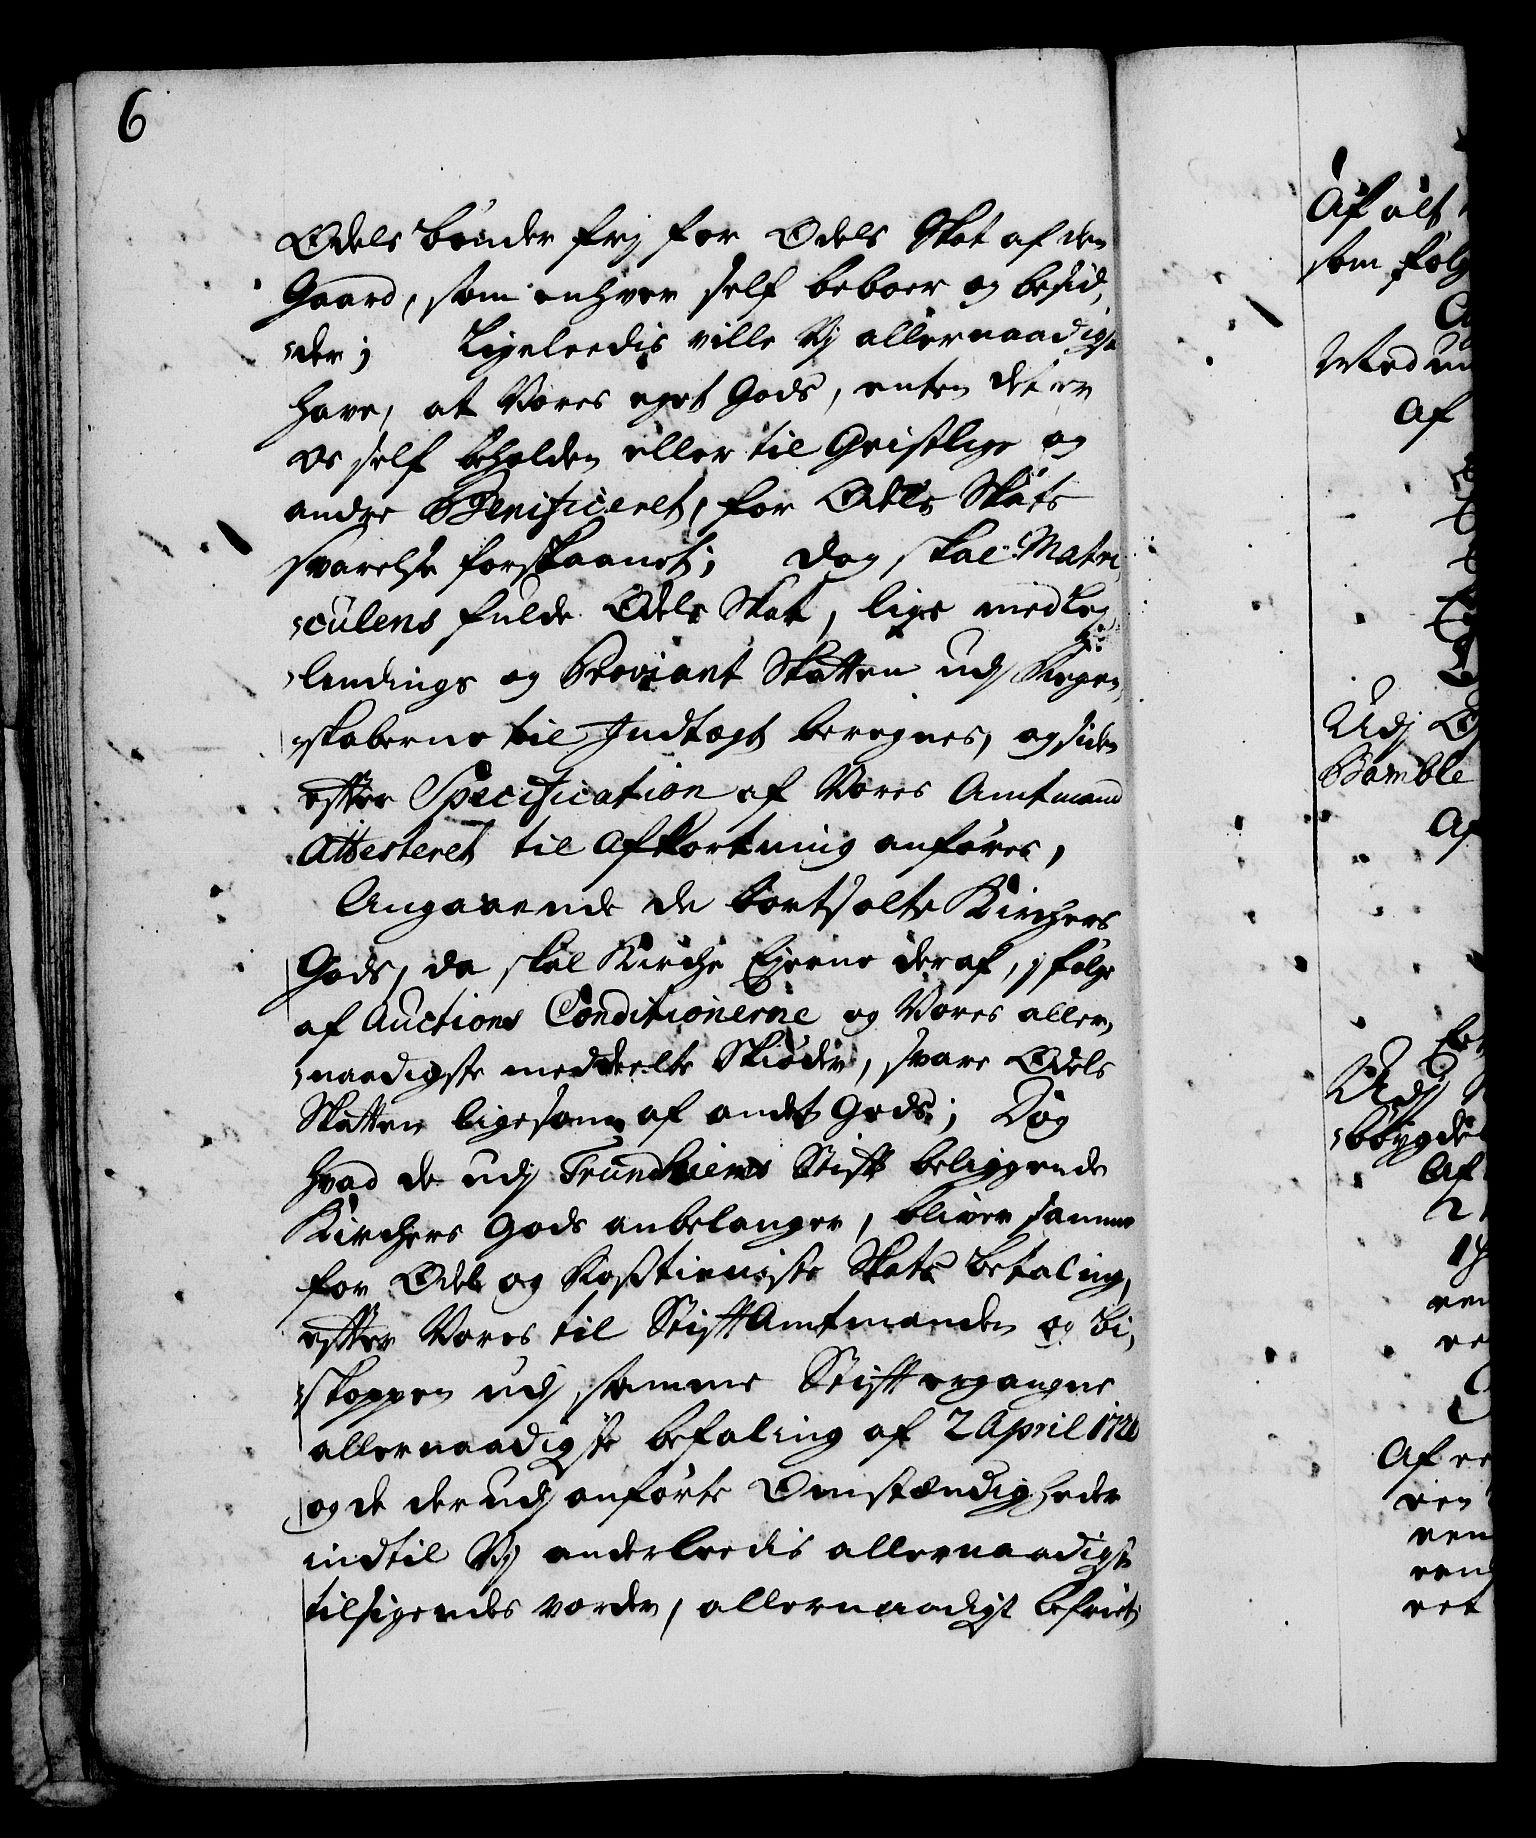 6
Odels bönder frj for Odels Skat af den
Gaard, som enhver self beboer og besid,
der; Ligeleedis ville Vj allernaadigst
have, at Vores eget Gods, enten det er
os self beholden eller til Geistlige og
andre Benificeret, for Odels Skats
svarelse forskaanet; dog skal Matri,
culens fulde Odels Skat, lige med Leg,
lendings og Proviant Skatten udj Regen,
skaberne til Indtægt beregnes, og siden
efter Specification af Vores Amtmand
Attesteret til Afkortning anföres,
Angaaende de bortsolte Kirchers
Gods, da skal Kirche Ejerne deraf, j fölge
af Auctions Conditionerne og Vores aller,
naadigste meddeelte Skiöder, svare Odels
Skatten ligesom af andet Gods; Dog
hvad de udj Trundhiems Stift beliggende
Kirchers Gods anbelanger, bliver samme
for Odel og Rostieniste Skats betaling,
efter Vores til Stift Amtmanden og bi,
skoppen udj samme Stift ergangne
allernaadigste befaling af 2 April 1726
og de der udj anförte Omstændigheder
indtil Vj anderleedis allernaadigst
tilsigendes vorder, allernaadigst befriet;
Af alt
som fölg
Med
Af
Udj
Bamble
Af
Udj
böygdel
Af
Af
een